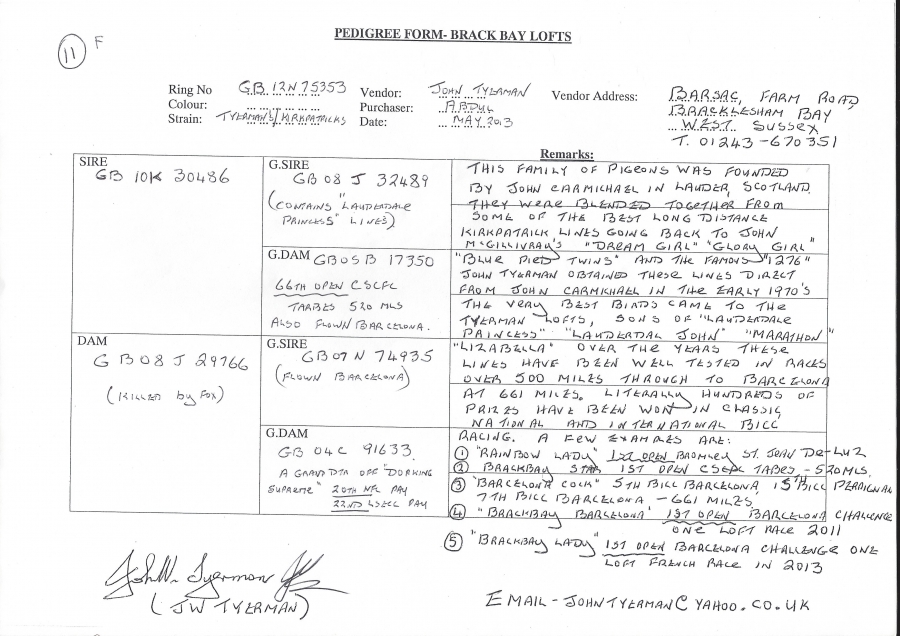 PEDIGREE FORM- BRACK BAY LOFTS
11 F
Ring No GB 12N 75353
Colour:
Strain: TYERMAN'S/ KIRKPATRICKS
Vendor: JOHN TYERMAN
Purchaser: ABDUL
Date: MAY 2013
Vendor Address: BARSAC, FARM ROAD
BRACKLESHAM BAY
WEST SUSSEX
T. 01243-670351
Remarks:
SIRE
GB 10K 30486
G.SIRE
GB 08 J 32489
(CONTAINS "LAUDERDALE
PRINCESS" LINES)
G.DAM GB05B 17350
66TH OPEN CSCFC
TARBES 520 MLS
ALSO FLOWN BARCELONA.
DAM
GB08J 29766
(KILLED by FOX)
G.SIRE
GB07N 74935
(FLOWN BARCELONA)
G.DAM
GB 04C 91633
A GRAND DTR OFF "DORKING
SUPREME" 20TH NFC PAU
22ND LSECC PAU
THIS FAMILY OF PIGEONS WAS FOUNDED
BY JOHN CARMICHAEL IN LAUDER, SCOTLAND.
THEY WERE BLENDED TOGETHER FROM
SOME OF THE BEST LONG DISTANCE
KIRKPATRICK LINES GOING BACK TO JOHN
McGILLIVRAY'S "DREAM GIRL" "GLORY GIRL"
"BLUE PIED TWINS" AND THE FAMOUS "1276"
JOHN TYERMAN OBTAINED THESE LINES DIRECT
FROM JOHN CARMICHAEL IN THE EARLY 1970'S
THE VERY BEST BIRDS CAME TO THE
TYERMAN LOFTS, SONS OF "LAUDERDALE
PRINCESS" "LAUDERDAL JOHN" "MARATHON"
"LIZABELLA" OVER THE YEARS THESE
LINES HAVE BEEN WELL TESTED IN RACES
OVER 500 MILES THROUGH TO BARCELONA
AT 661 MILES. LITERALLY HUNDREDS OF
PRIZES HAVE BEEN WON IN CLASSIC,
NATIONAL AND INTERNATIONAL BICC
RACING. A FEW EXAMPLES ARE:
① "RAINBOW LADY" 1ST OPEN BROMLEY ST. JEAN DE-LUZ
② BRACKBAY STAR 1ST OPEN CSCFC TABES - 520 MLS.
③ "BARCELONA COCK" 5TH BICC BARCELONA 15TH BICC PERPIGNAN
7TH BICC BARCELONA - 661 MILES,
④ "BRACKBAY BARCELONA" 1ST OPEN BARCELONA CHALLENGE
ONE LOFT RACE 2011
⑤ "BRACKBAY LADY" 1ST OPEN BARCELONA CHALLENGE ONE
LOFT FRENCH RACE IN 2013
John W. Tyerman
(JW TYERMAN)
EMAIL - JOHNTYERMAN@YAHOO.CO.UK